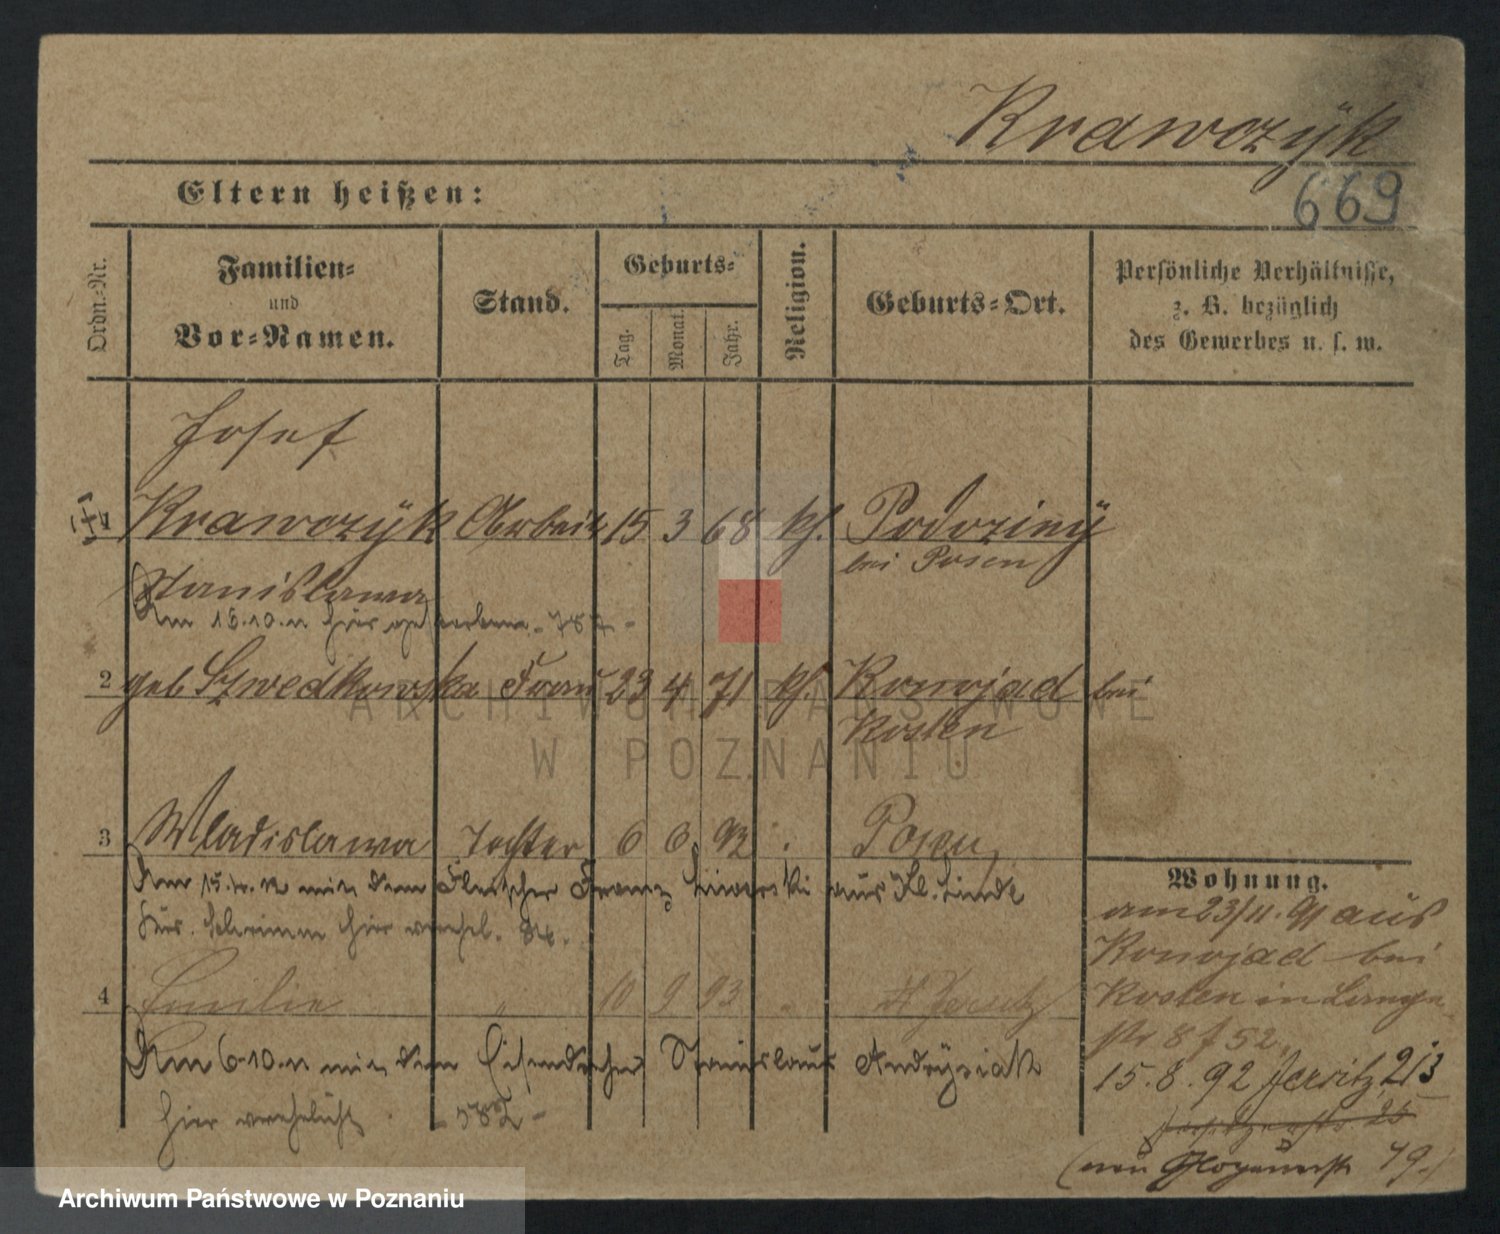 Krawczÿk
669
Eltern heißen:
Ordn.-Nr.
Familien-
und
Vor-Namen.
Stand.
Geburts-
Tag.
Monat.
Jahr.
Religion.
Geburts-Ort.
Persönliche Verhältnisse,
z. B. bezüglich
des Gewerbes u. s. w.
Josef
1 Krawczÿk Arbeit. 15 3 68 kf.
bei Posen
Stanislawa
Am 18.10.11 hier gestorben - 787 -
2 geb Szwedkowska Frau 23 4 71 kf. Konojad bei
Kosten
3 Wladislawa Tochter 6 6 92 Posen
Am 15. mit dem Fleischer Franz aus Kl.
Krs. Schrimm hier verehel. 84.
4 Emilie " 10 9 93 Jersitz
Am 6.10.11 mit dem Eisendreher Stanislaus Andrÿsiak
hier verehelicht - 582 -
Wohnung.
am 23/11. 91 aus
Konojad bei
Kosten in Lange
str 8 f 52.
15.8.92 Jersitz 213
25
(neu Glogauerstr 79.)
ARCHIWUM PAŃSTWOWE
W POZNANIU
Archiwum Państwowe w Poznaniu